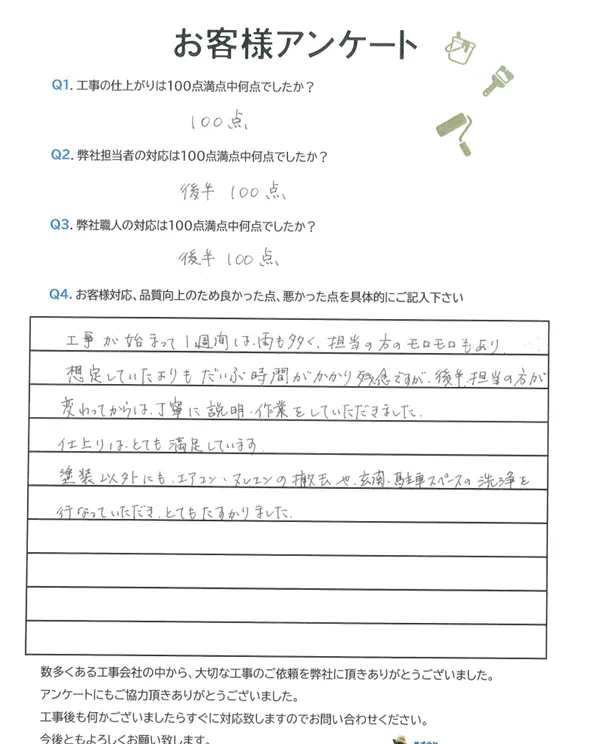 お客様アンケート
Q1. 工事の仕上がりは100点満点中何点でしたか？
100点
Q2. 弊社担当者の対応は100点満点中何点でしたか？
後半 100点
Q3. 弊社職人の対応は100点満点中何点でしたか？
後半 100点
Q4. お客様対応、品質向上のため良かった点、悪かった点を具体的にご記入下さい
工事が始まって1週間は、雨も多く、担当の方のモロモロもあり
想定していたよりもだいぶ時間がかかり残念ですが、後半、担当の方が
変わってからは、丁寧に説明・作業をしていただきました。
仕上りは、とても満足しています。
塗装以外にも、エアコン・アンテナの撤去や、玄関・駐車スペースの洗浄を
行なっていただき、とてもたすかりました。
数多くある工事会社の中から、大切な工事のご依頼を弊社に頂きありがとうございました。
アンケートにもご協力頂きありがとうございました。
工事後も何かございましたらすぐに対応致しますのでお問い合わせください。
今後ともよろしくお願い致します。
株式会社